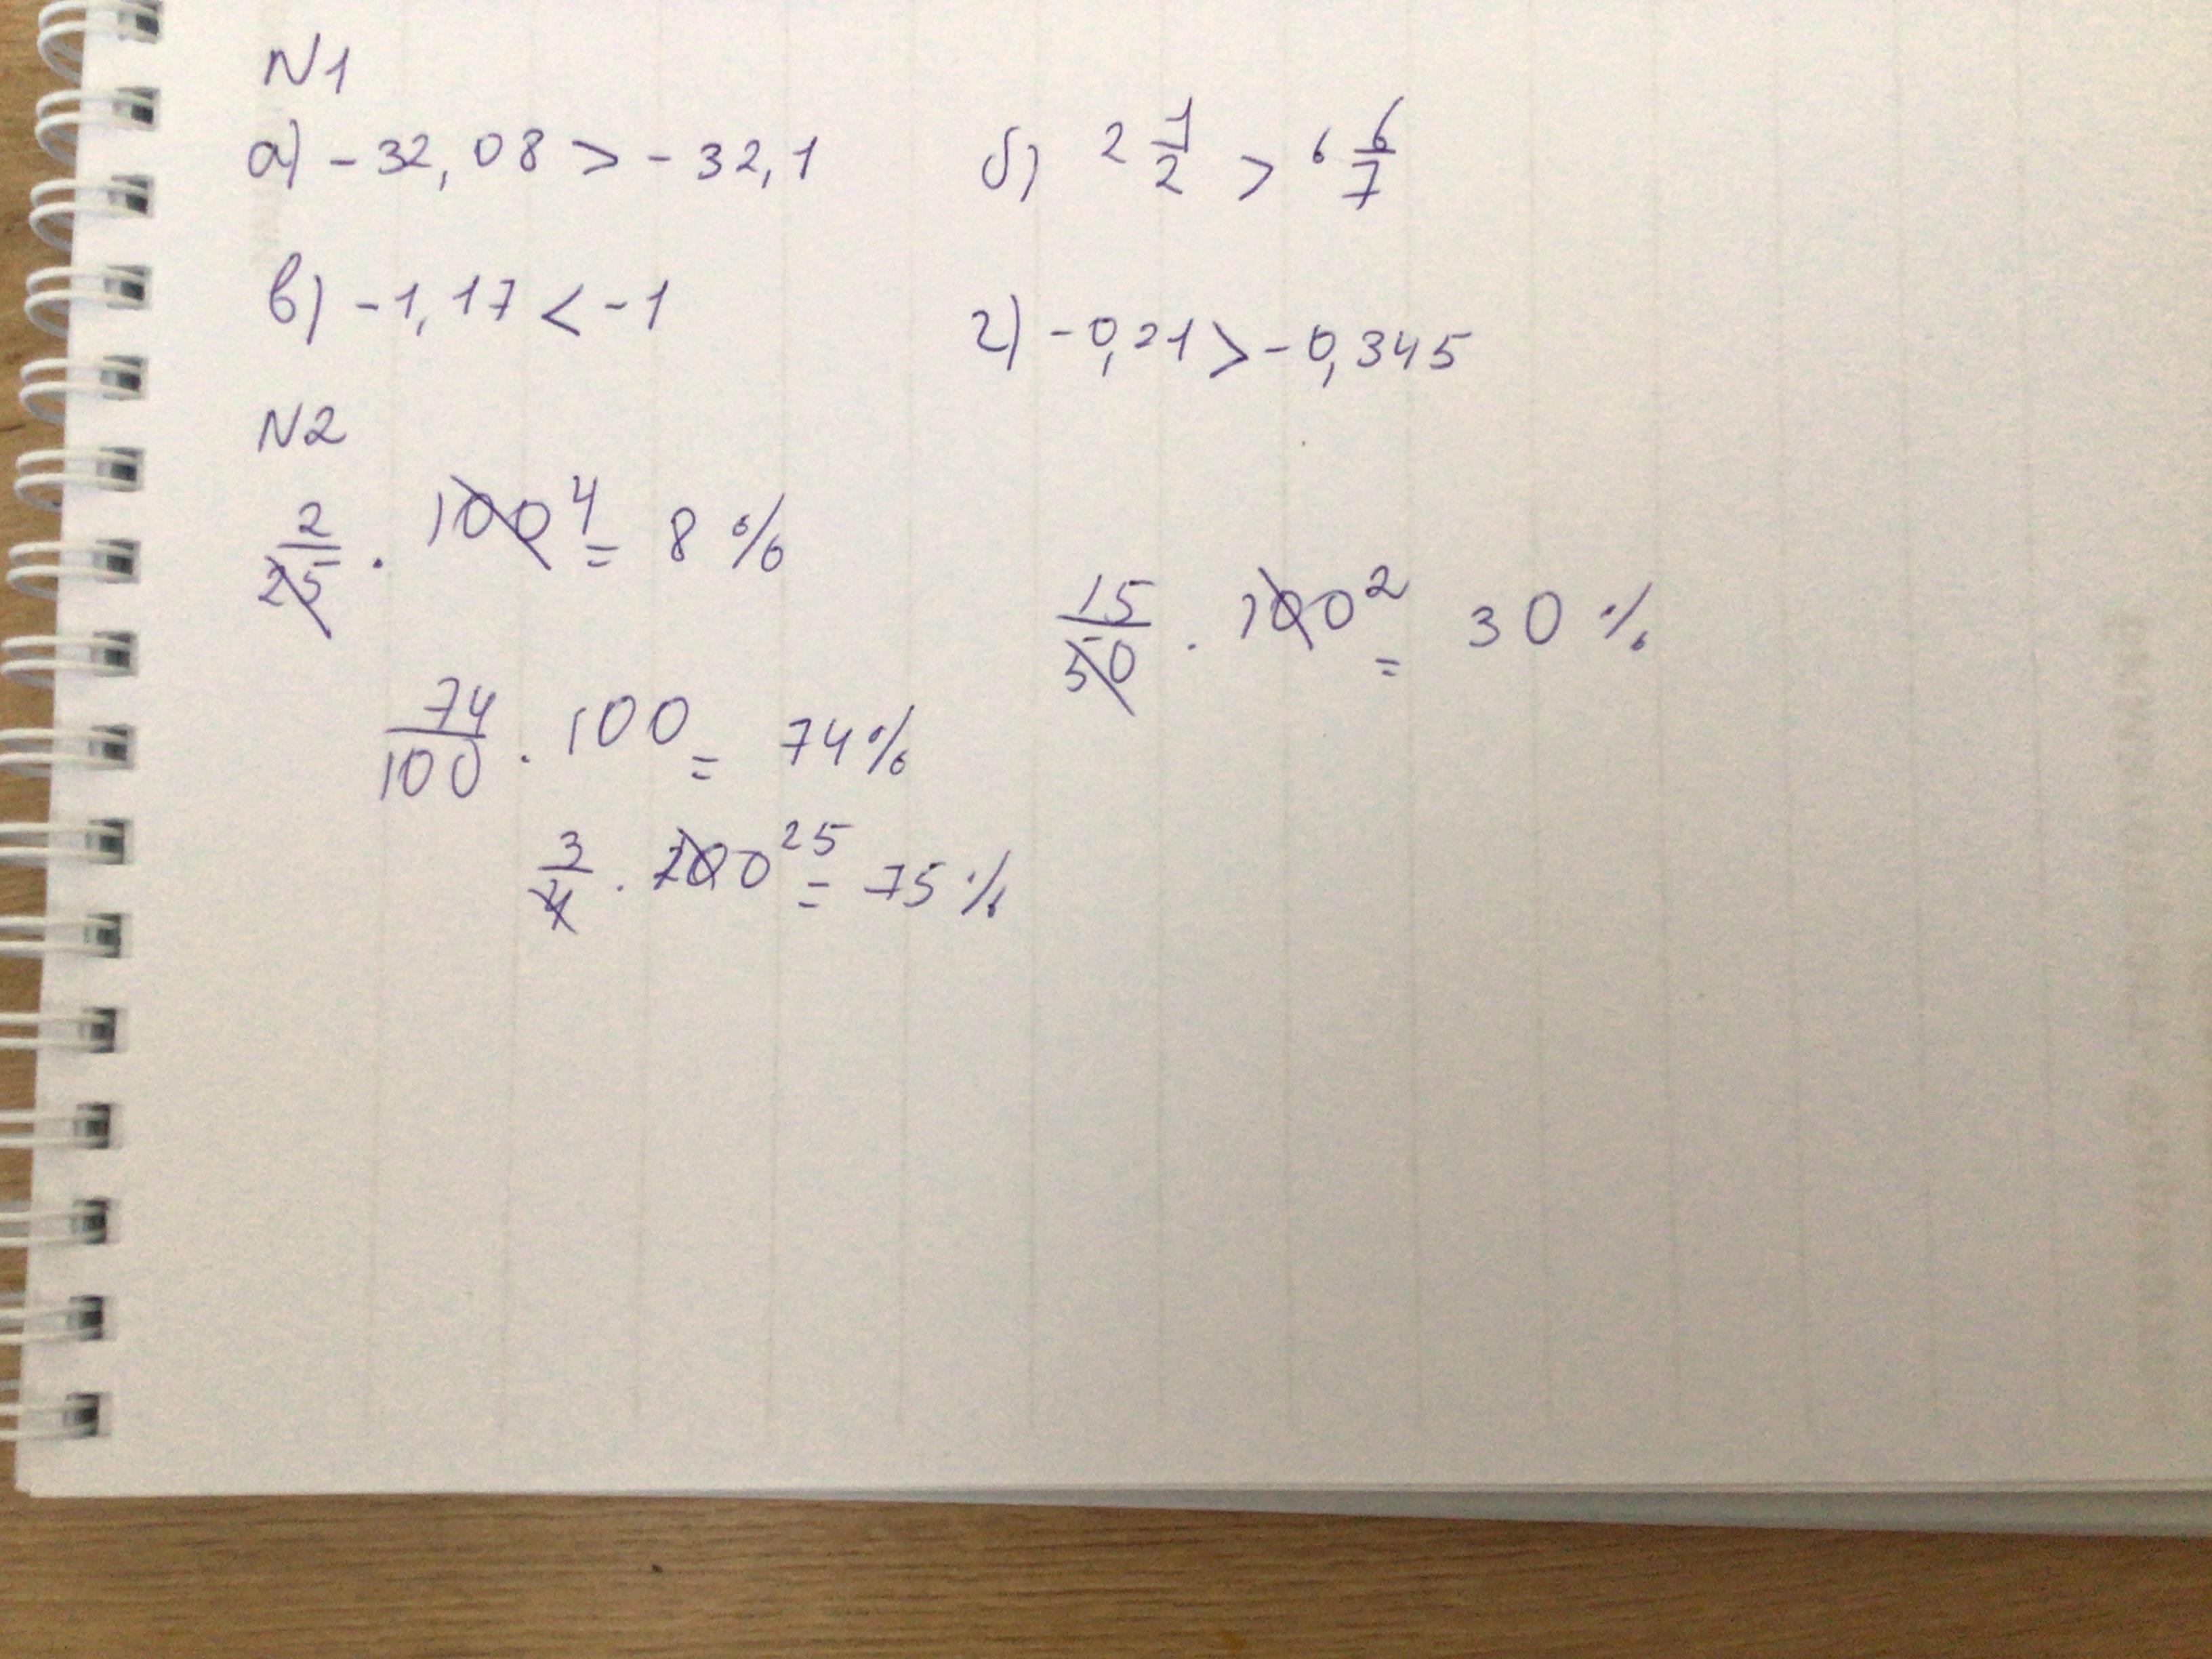 N1
а) -32,08 > -32,1
б) 2 1/2 > 6 6/7
в) -1,17 < -1
г) -0,21 > -0,345
N2
2/25 · 100 4 = 8 %
15/50 · 100 2 = 30 %
74/100 · 100 = 74 %
3/4 · 100 25 = 75 %